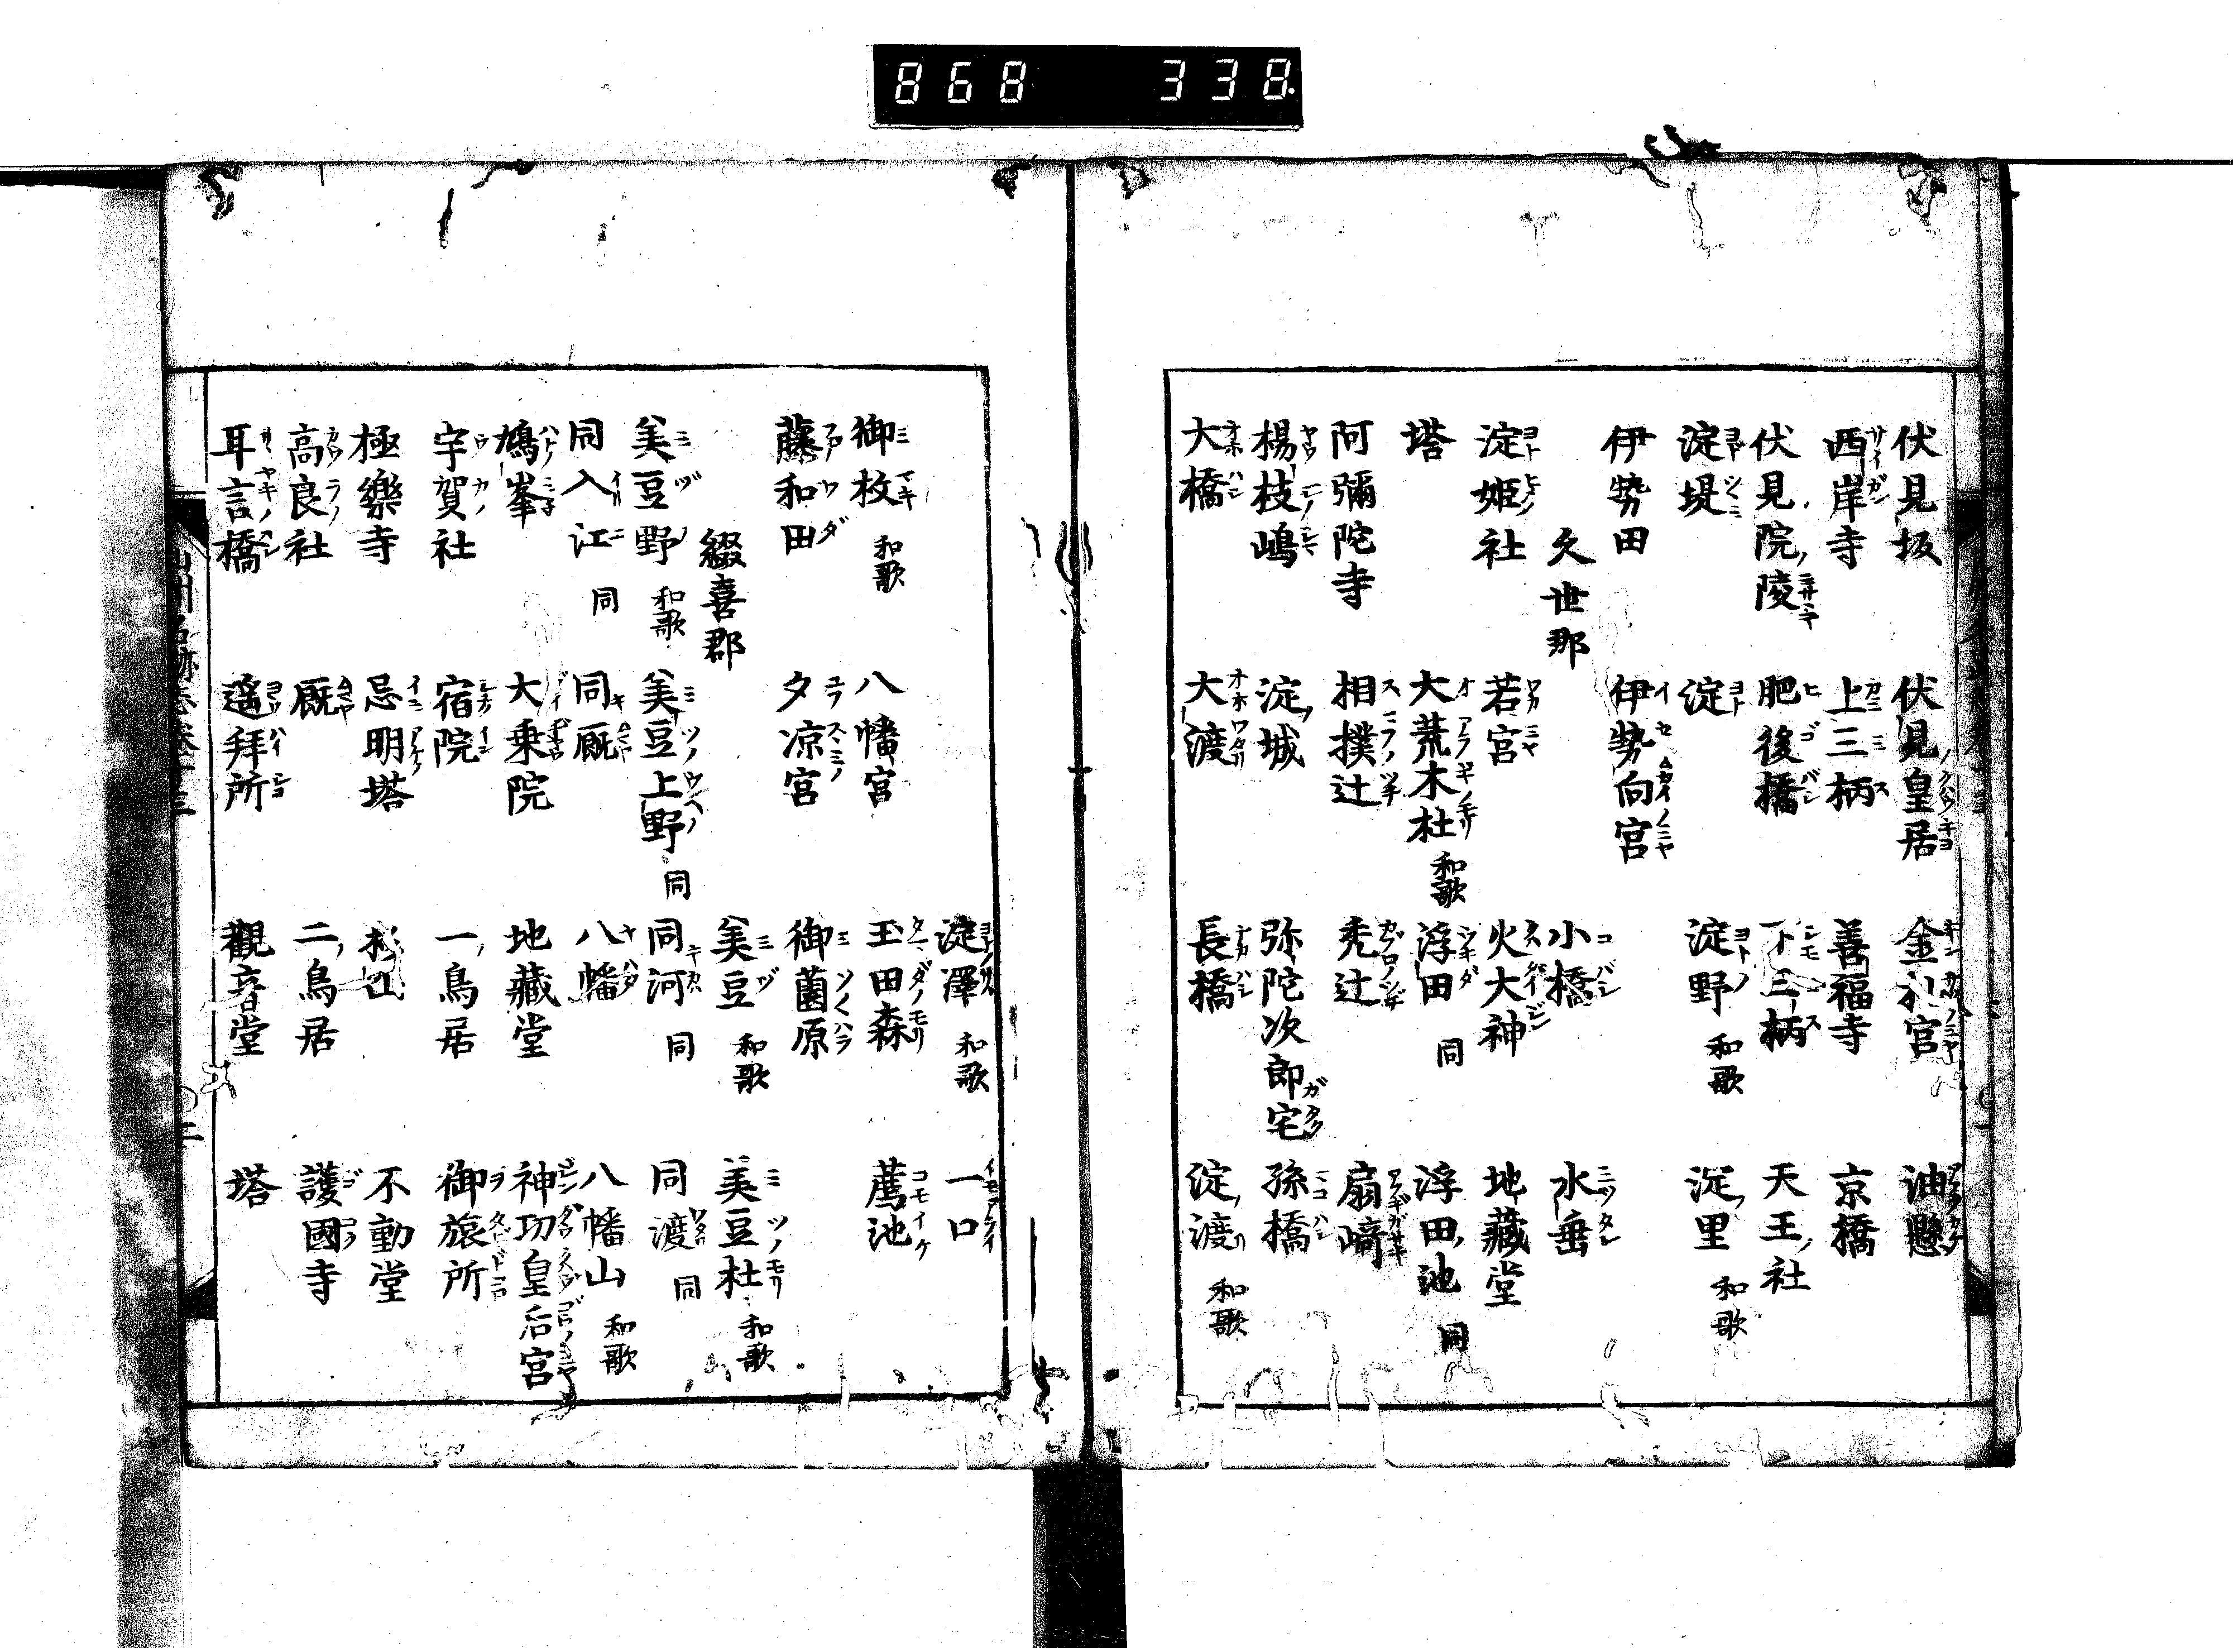 868 338
伏見坂 伏見皇居 金札宮 油懸
西岸寺 上三栖 善福寺 京橋
伏見院陵 肥後橋 下三栖 天王社
淀堤 淀 淀野 和歌 淀里 和歌
伊勢田 伊勢向宮
久世郡 小橋 水垂
淀姫社 若宮 火大神 地藏堂
塔 大荒木杜 和歌 浮田 同 浮田池 同
阿彌陀寺 相撲辻 禿辻 扇﨑
楊枝嶋 淀城 弥陀次郎宅 孫橋
大橋 大渡 長橋 淀渡 和歌
淀澤 和歌 一口
御枚 和歌 八幡宮 玉田森 薦池
藤和田 夕凉宮 御薗原
綴喜郡 美豆 和歌 美豆杜 和歌
美豆野 和歌 美豆上野 同 同河 同 同渡 同
同入江 同 同厩 八幡 八幡山 和歌
鳩峯 大乗院 地藏堂 神功皇后宮
宇賀社 宿院 一鳥居 御旅所
極樂寺 忌明塔 不動堂
高良社 厩 二鳥居 護國寺
耳言橋 遥拜所 觀音堂 塔